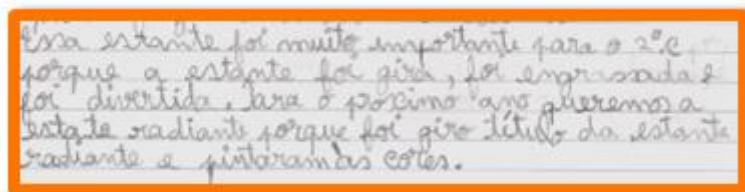 Essa estante foi muito importante para o 2º C
porque a estante foi gira, foi engrassada e
foi divertida. Para o proximo ano queremos a
estate radiante porque foi giro título da estante
radiante e pintaram as cores.